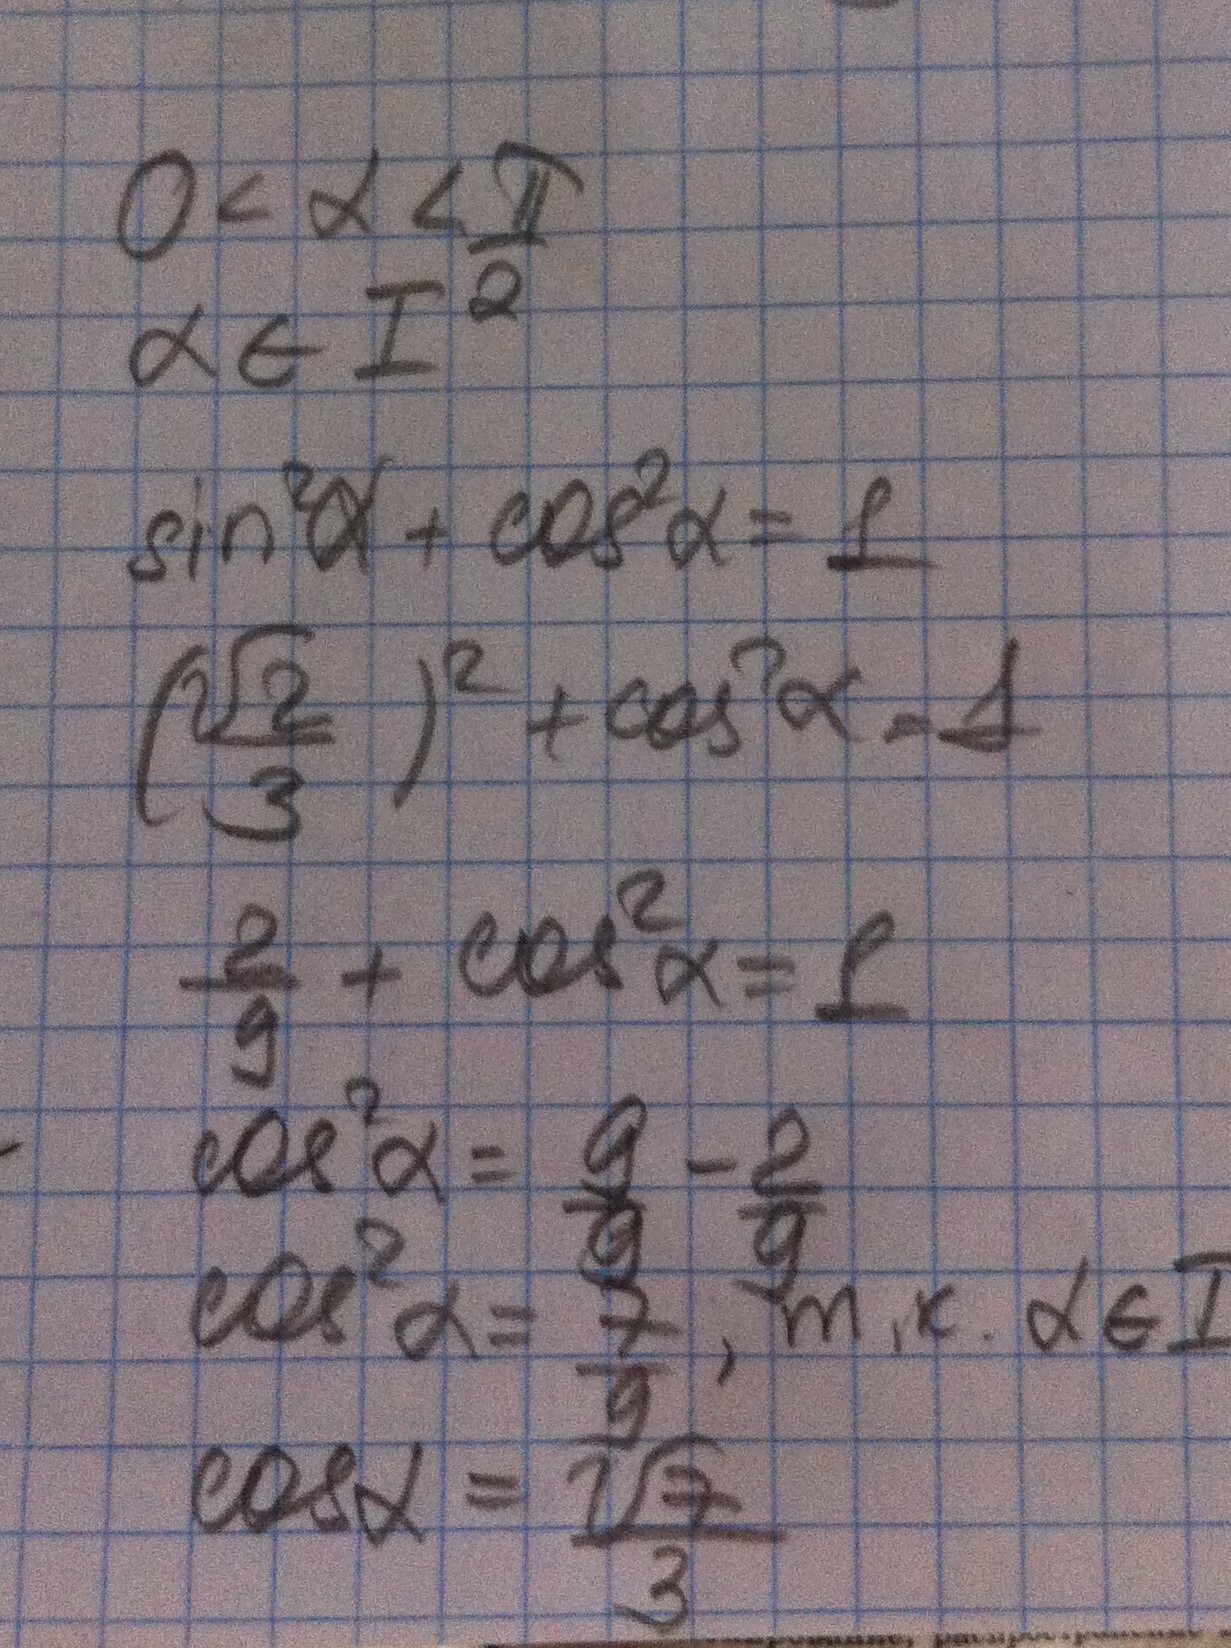 0 < α < π/2
α ∈ I
sin²α + cos²α = 1
(√2/3)² + cos²α = 1
2/9 + cos²α = 1
cos²α = 9/9 - 2/9
cos²α = 7/9, т.к. α ∈ I
cosα = √7/3